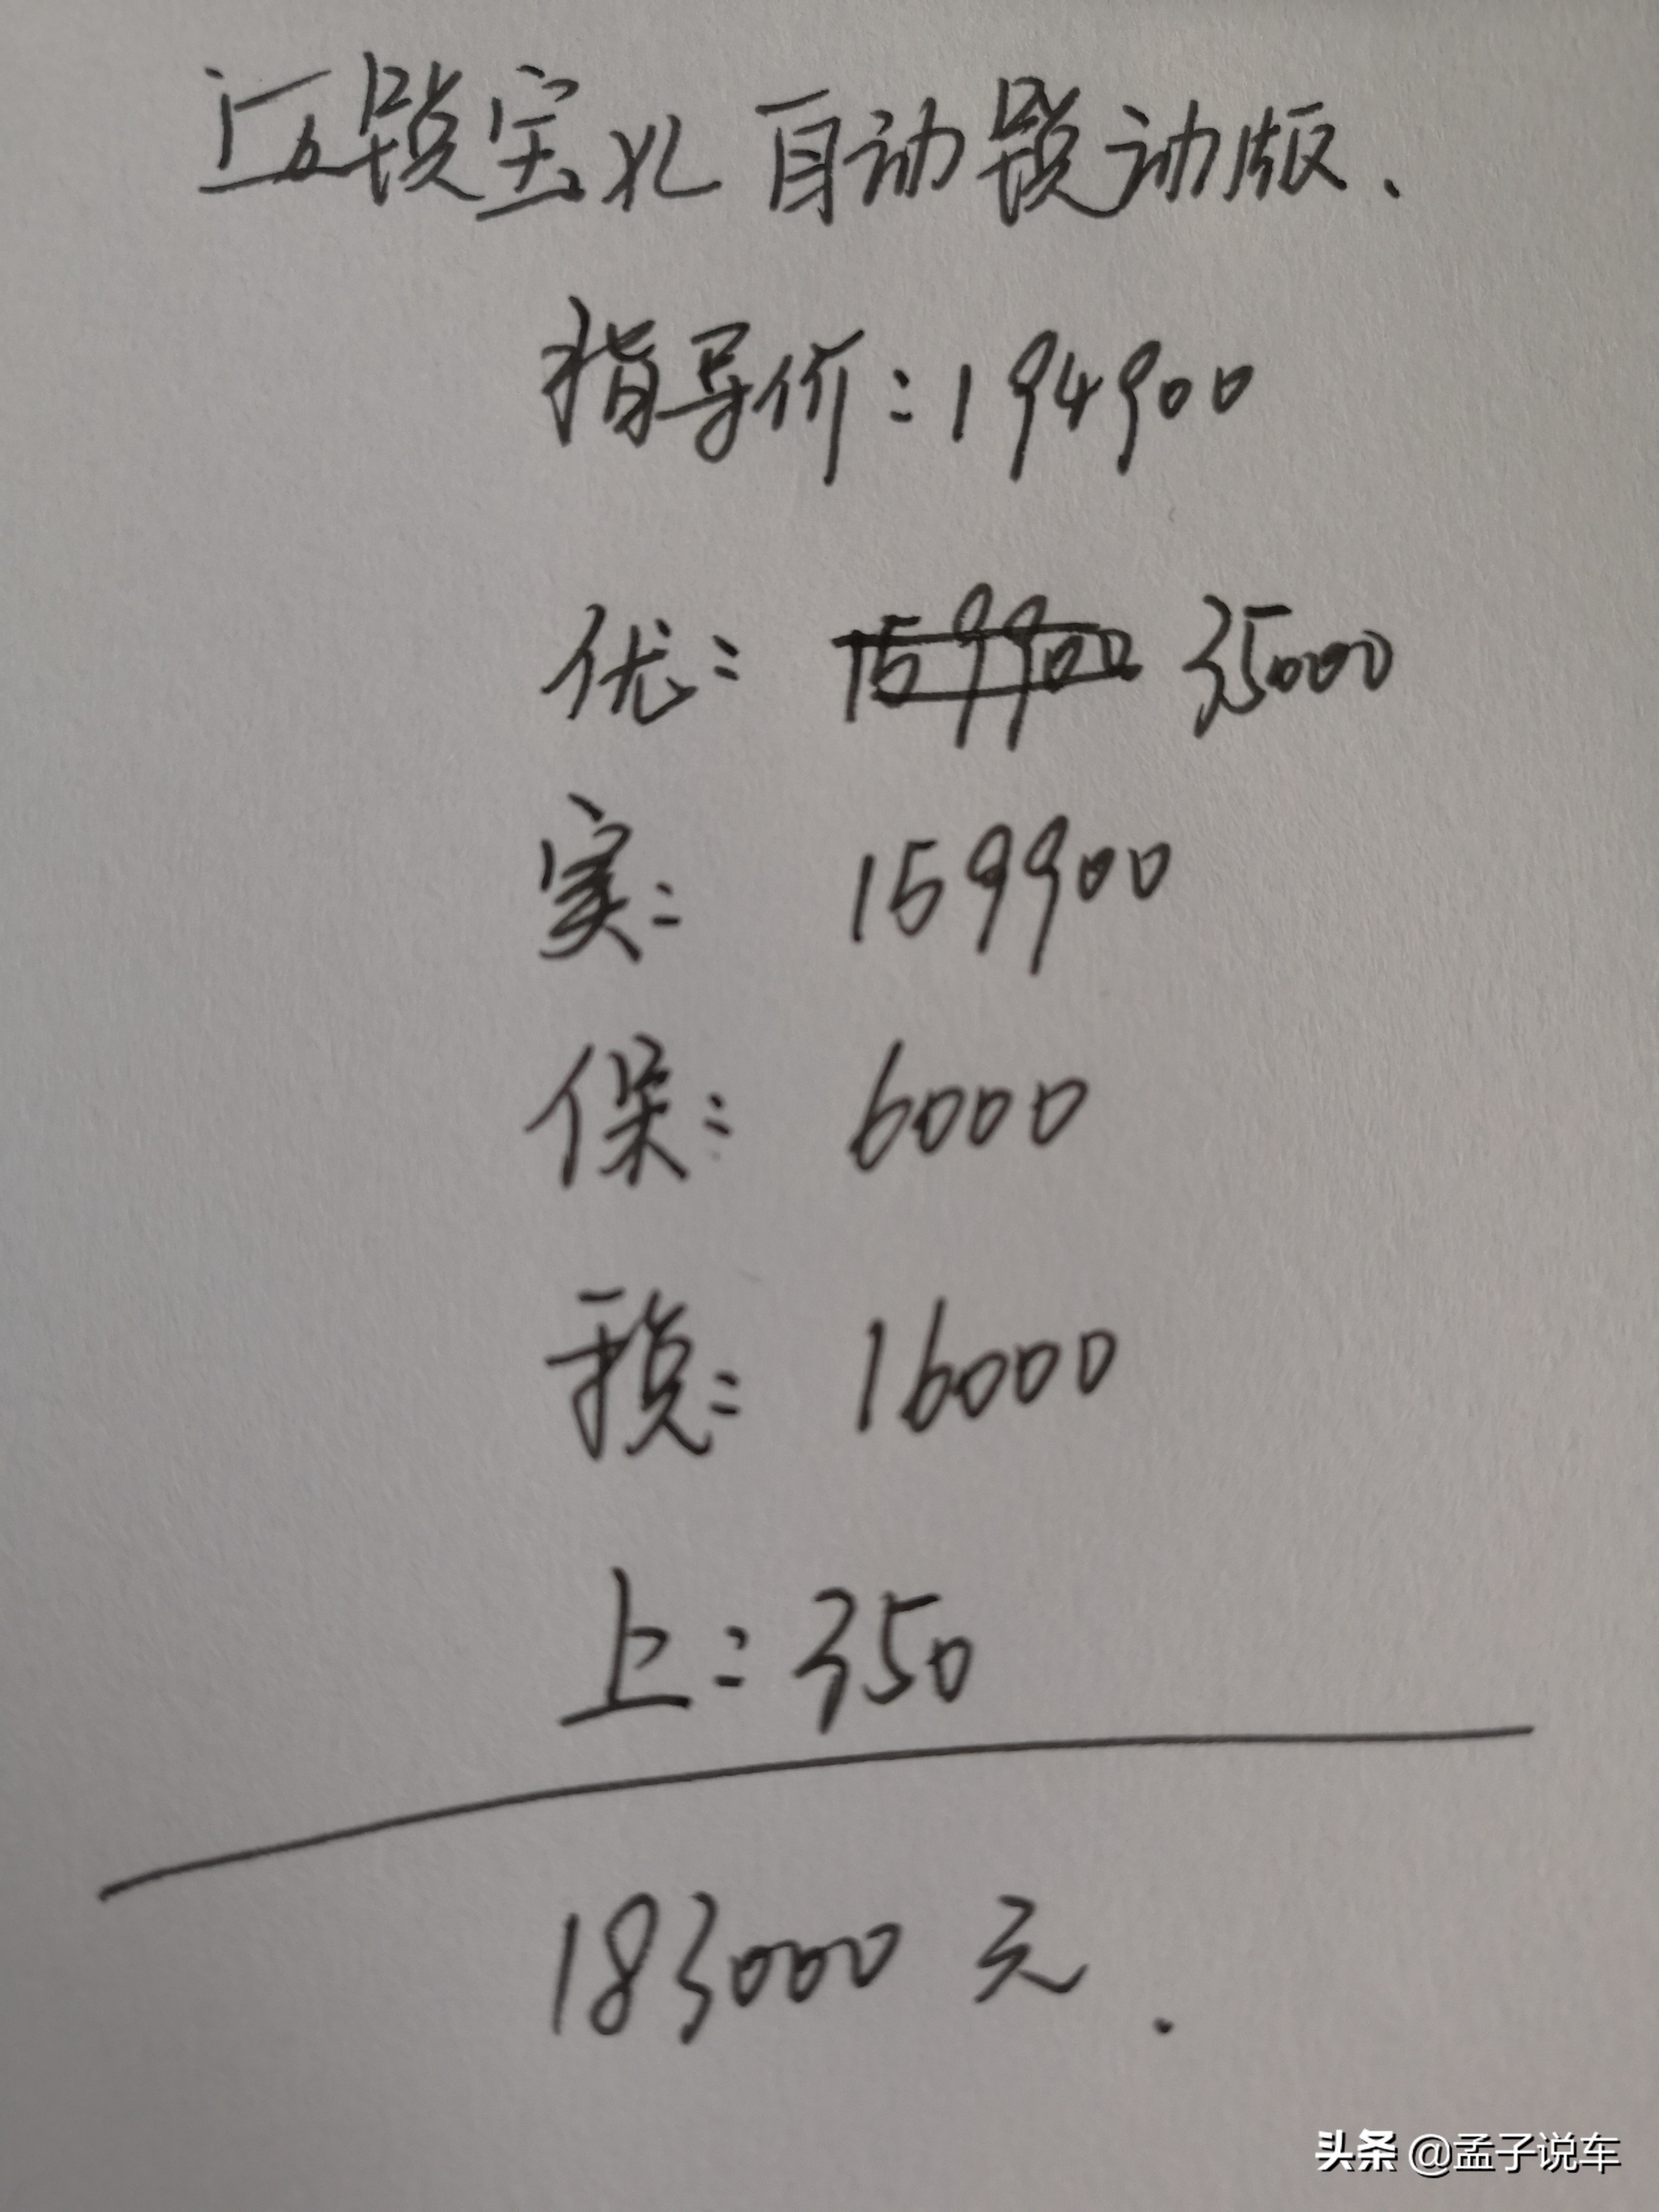 迈锐宝XL 自动锐动版.
指导价:194900
优: 159900 35000
实: 159900
保: 6000
税: 16000
上:350
183000 元.
头条 @孟子说车